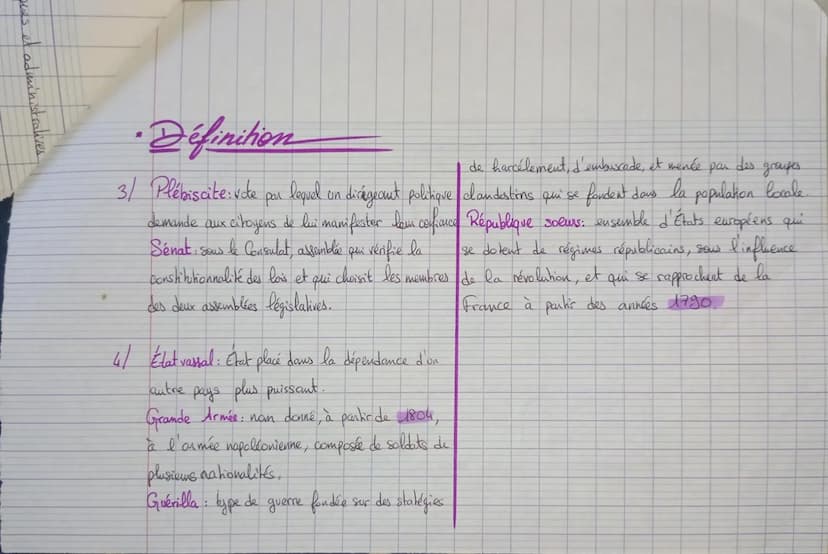 ques et administratives
• Définition
3/ Plébiscite : vote par lequel un dirigeant politique
demande aux citoyens de lui manifester leur confiance
Sénat : sous le Consulat, assemblée qui vérifie la
constitutionnalité des lois et qui choisit les membres
des deux assemblées législatives.
4/ État vassal : État placé dans la dépendance d'un
autre pays plus puissant.
Grande Armée : nom donné, à partir de 1804,
à l'armée napoléonienne, composée de soldats de
plusieurs nationalités.
Guérilla : type de guerre fondée sur des statégies
de harcèlement, d'embuscade, et menée par des groupes
clandestins qui se fondent dans la population locale.
République soeurs : ensemble d'États européens qui
se dotent de régimes républicains, sous l'influence
de la révolution, et qui se rapprochent de la
France à partir des années 1790